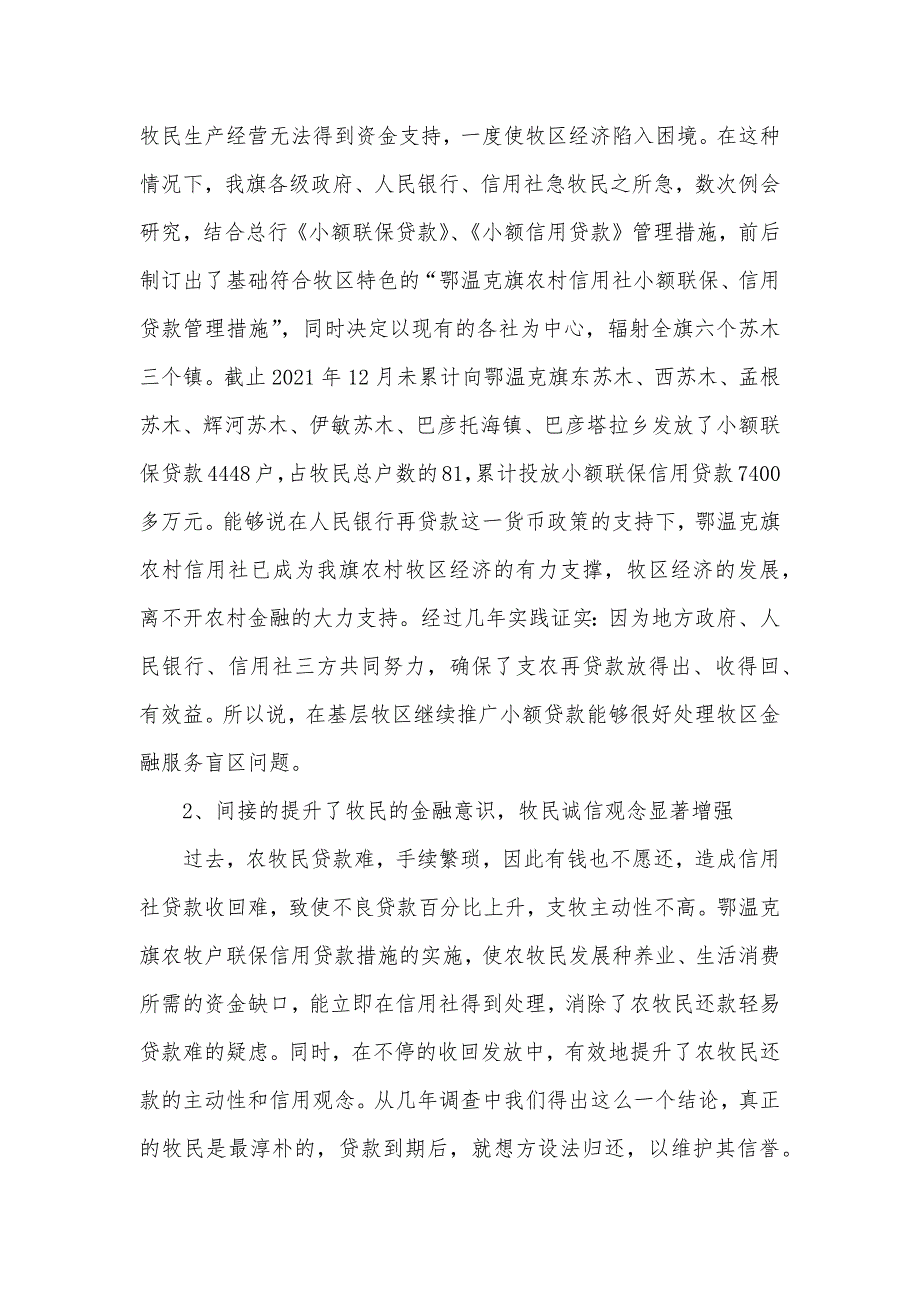 牧民生产经营无法得到资金支持，一度使牧区经济陷入困境。在这种
情况下，我旗各级政府、人民银行、信用社急牧民之所急，数次例会
研究，结合总行《小额联保贷款》、《小额信用贷款》管理措施，前后
制订出了基础符合牧区特色的“鄂温克旗农村信用社小额联保、信用
贷款管理措施”，同时决定以现有的各社为中心，辐射全旗六个苏木
三个镇。截止 2021 年 12 月未累计向鄂温克旗东苏木、西苏木、孟根
苏木、辉河苏木、伊敏苏木、巴彦托海镇、巴彦塔拉乡发放了小额联
保贷款 4448 户，占牧民总户数的 81，累计投放小额联保信用贷款 7400
多万元。能够说在人民银行再贷款这一货币政策的支持下，鄂温克旗
农村信用社已成为我旗农村牧区经济的有力支撑，牧区经济的发展，
离不开农村金融的大力支持。经过几年实践证实：因为地方政府、人
民银行、信用社三方共同努力，确保了支农再贷款放得出、收得回、
有效益。所以说，在基层牧区继续推广小额贷款能够很好处理牧区金
融服务盲区问题。
2、间接的提升了牧民的金融意识，牧民诚信观念显著增强
过去，农牧民贷款难，手续繁琐，因此有钱也不愿还，造成信用
社贷款收回难，致使不良贷款百分比上升，支牧主动性不高。鄂温克
旗农牧户联保信用贷款措施的实施，使农牧民发展种养业、生活消费
所需的资金缺口，能立即在信用社得到处理，消除了农牧民还款轻易
贷款难的疑虑。同时，在不停的收回发放中，有效地提升了农牧民还
款的主动性和信用观念。从几年调查中我们得出这么一个结论，真正
的牧民是最淳朴的，贷款到期后，就想方设法归还，以维护其信誉。